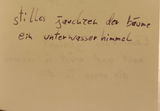 stilles jauchzen der bäume
ein unterwasserhimmel